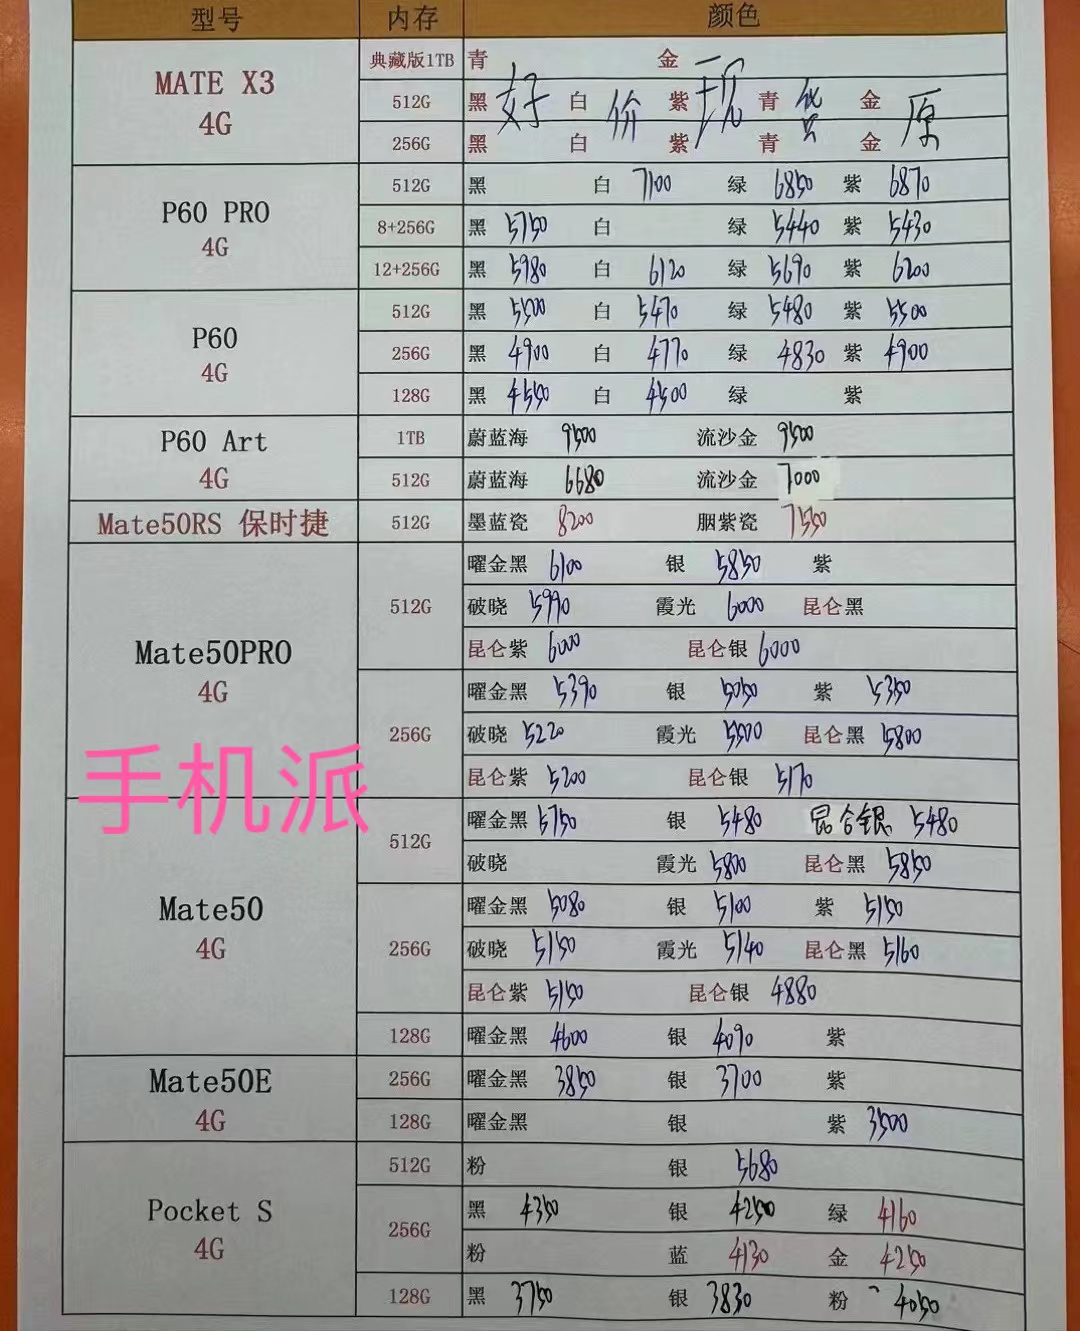 型号 内存 颜色
MATE X3 4G
典藏版1TB 青 金
512G 黑 白 紫 青 金
256G 黑 白 紫 青 金
好 价 现 货 原
P60 PRO 4G
512G 黑 白 7100 绿 6850 紫 6870
8+256G 黑 5750 白 绿 5440 紫 5430
12+256G 黑 5980 白 6120 绿 5690 紫 6200
P60 4G
512G 黑 5500 白 5470 绿 5480 紫 5500
256G 黑 4900 白 4770 绿 4830 紫 4900
128G 黑 4550 白 4500 绿 紫
P60 Art 4G
1TB 蔚蓝海 9500 流沙金 9500
512G 蔚蓝海 6680 流沙金 7000
Mate50RS 保时捷 512G 墨蓝瓷 8200 胭紫瓷 7550
Mate50PRO 4G
512G 曜金黑 6100 银 5850 紫
破晓 5990 霞光 6000 昆仑黑
昆仑紫 6000 昆仑银 6000
256G 曜金黑 5390 银 5050 紫 5350
破晓 5220 霞光 5500 昆仑黑 5800
昆仑紫 5200 昆仑银 5170
手机派
Mate50 4G
512G 曜金黑 5750 银 5480 昆仑银 5480
破晓 霞光 5800 昆仑黑 5850
256G 曜金黑 5080 银 5100 紫 5150
破晓 5150 霞光 5140 昆仑黑 5160
昆仑紫 5150 昆仑银 4880
128G 曜金黑 4600 银 4090 紫
Mate50E 4G
256G 曜金黑 3850 银 3700 紫
128G 曜金黑 银 紫 3500
Pocket S 4G
512G 粉 银 5680
256G 黑 4350 银 4250 绿 4160
粉 蓝 4130 金 4250
128G 黑 3750 银 3830 粉 4050